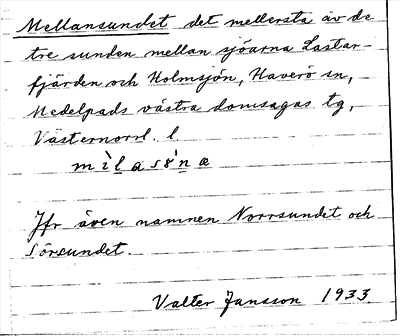 Mellansundet det mellersta av de
tre sunden mellan sjöarna Lastar-
fjärden och Holmsjön, Haverö sn,
Medelpads västra domsagas tg,
Västernorrl. l
Jfr även namnen Norrsundet och
Sörsundet.
Valter Jansson 1933.